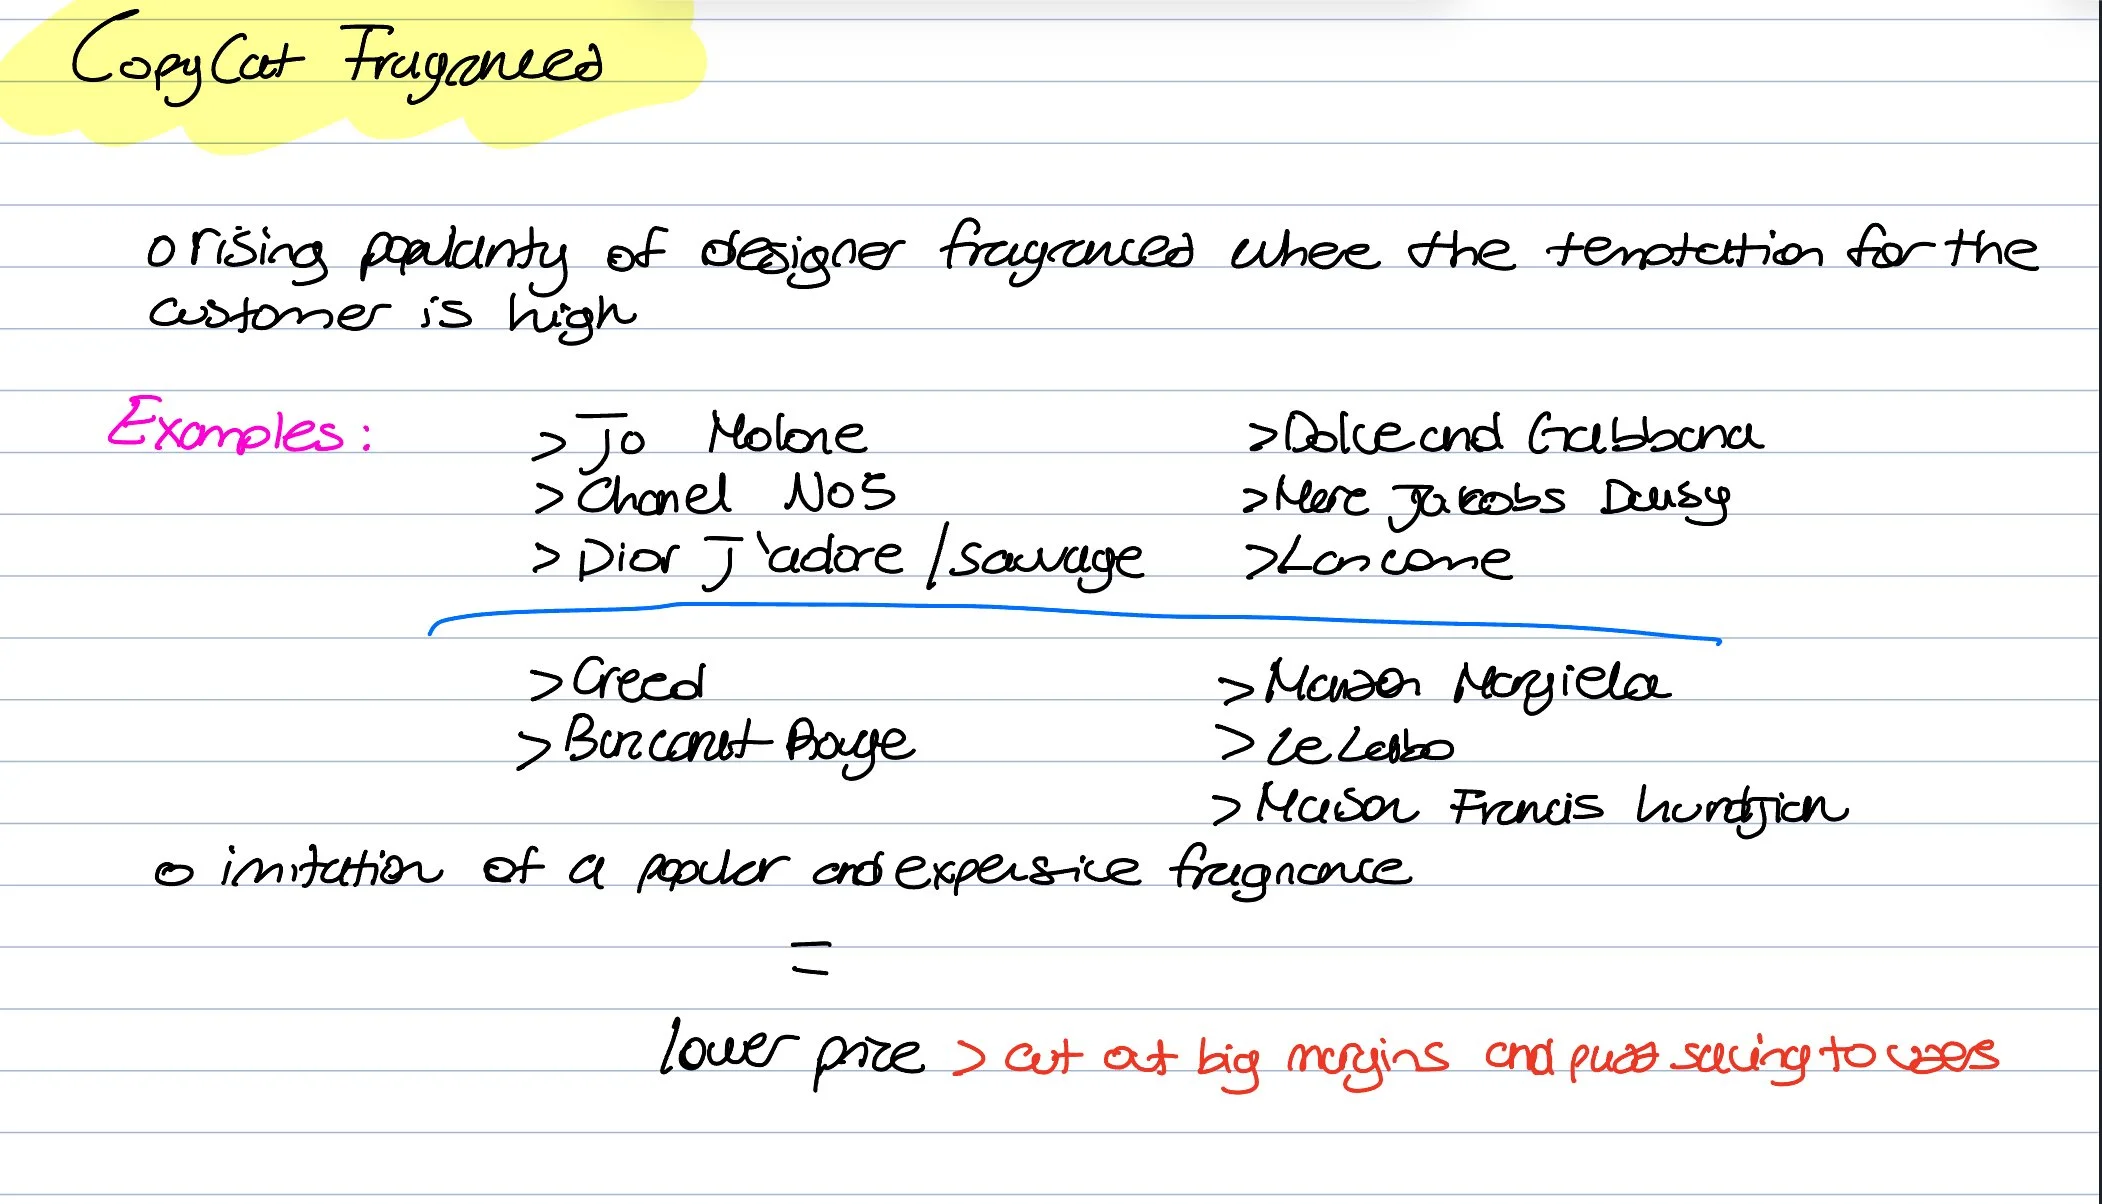 CopyCat Fragances
o rising popularity of designer fragrances where the temptation for the
customer is high
Examples: > Jo Malone > Dolce and Gabbana
> Chanel No5 > Marc Jacobs Daisy
> Dior J'adore / Sauvage > Lancome
> Creed > Maison Margiela
> Baccarat Rouge > Le Labo
> Maison Francis kurdjian
o imitation of a popular and expensive fragnance
=
lower price > cut out big margins and pass saving to users